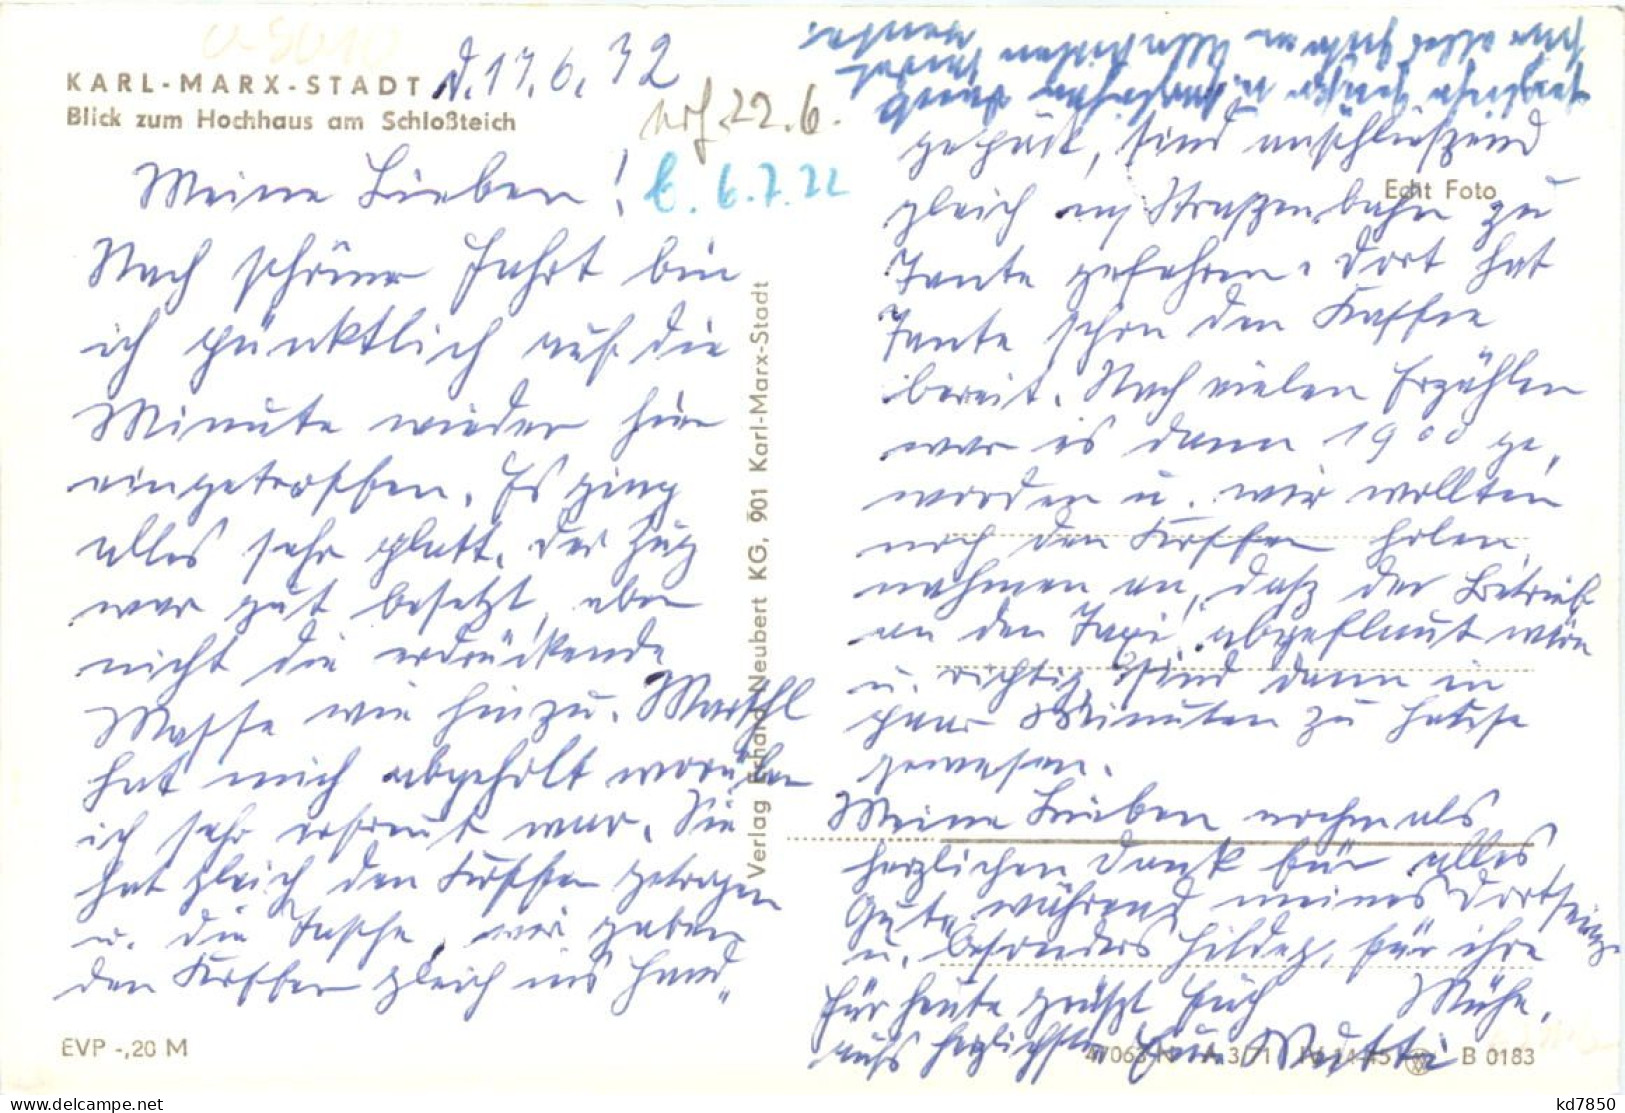 KARL-MARX-STADT d. 17.6.72
Blick zum Hochhaus am Schloßteich
22.6.
6.7.72
Meine Lieben!
Nach schöner Fahrt bin
ich pünktlich auf die
Minute wieder hier
eingetroffen. Es ging
alles sehr glatt. Der Zug
war gut besetzt, aber
nicht die erdrückende
Masse wie hinzu.
hat mich abgeholt worüber
ich sehr erfreut war. Sie
hat gleich den Koffer getragen
u. die Tasche, wir gaben
den Koffer gleich ins Hand„
EVP -,20 M
Verlag Erhard Neubert KG, 901 Karl-Marx-Stadt
gepäck, sind anschließend
Echt Foto
gleich m/ Straßenbahn zu
Tante gefahren. Dort hat
Tante schon den Kaffee
bereit. Nach vielen Erzählen
war es dann 19 00 ge„
worden u. wir wollten
noch den Koffer holen,
nahmen an, daß der Betrieb
an den Taxi abgeflaut wäre
u. richtig, sind dann in
paar Minuten zu Hause
gewesen.
Meine Lieben nochmals
herzlichen Dank für alles
Gute während meines Dortseins
u. besonders Hildeg. für ihre
Mühe.
Für heute grüßt Euch
aufs herzlichste Eure Mutti
A 3/71
B 0183
kd7850